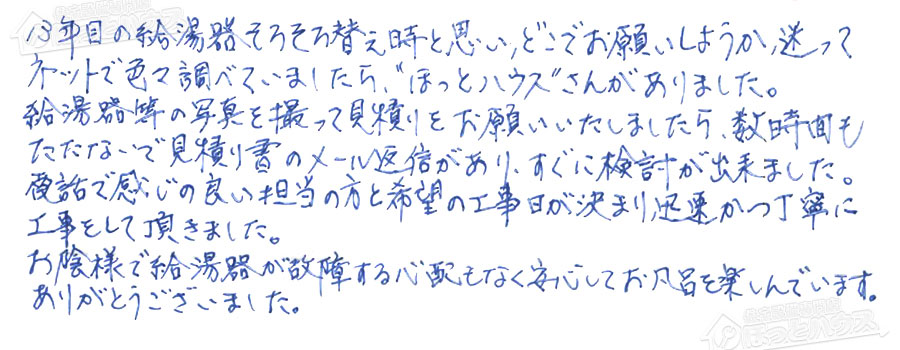 13年目の給湯器そろそろ替え時と思い、どこでお願いしようか、迷って
ネットで色々調べていましたら、"ほっとハウス"さんがありました。
給湯器等の写真を撮って見積りをお願いいたしましたら、数時間も
たたないで見積り書のメール返信があり、すぐに検討が出来ました。
電話で感じの良い担当の方と希望の工事日が決まり、迅速かつ丁寧に
工事をして頂きました。
お陰様で給湯器が故障する心配もなく安心してお風呂を楽しんでいます。
ありがとうございました。
ほっとハウス